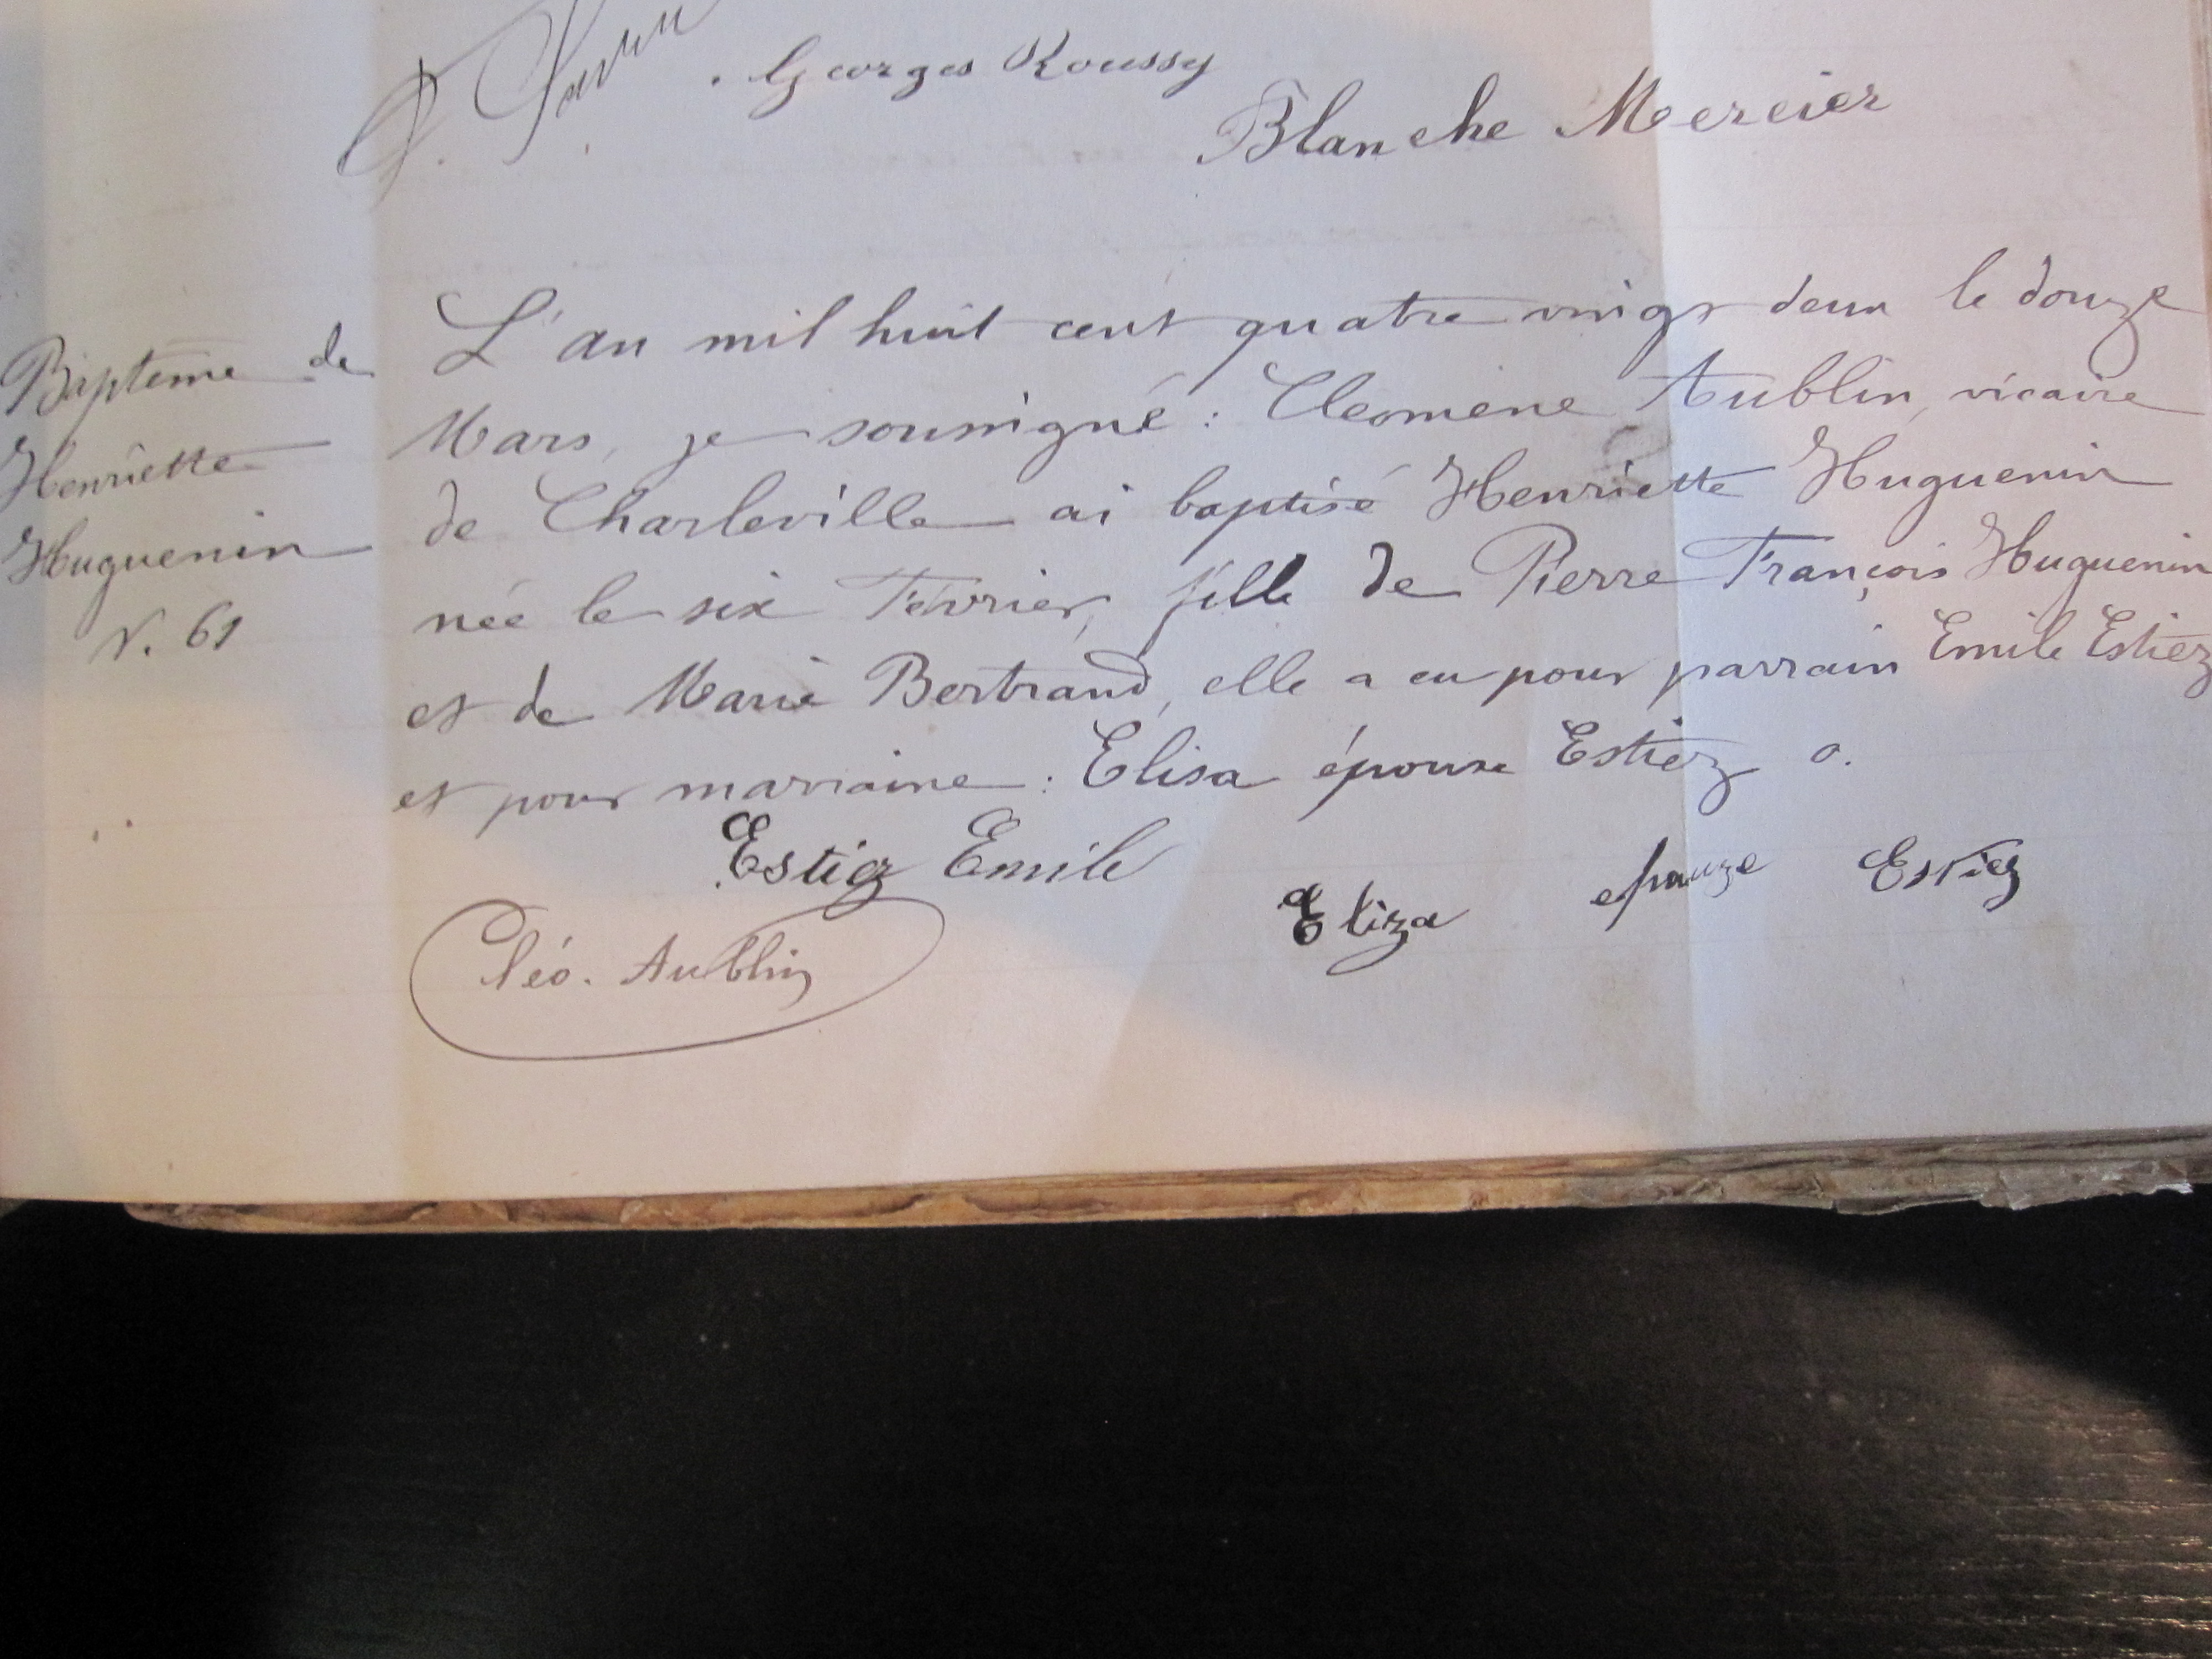 Georges Roussy
Blanche Mercier
Baptême de
Henriette
Huguenin
N. 61
L'an mil huit cent quatre vingt deux le douze
Mars, je soussigné : Cleomène Aublin, vicaire
de Charleville ai baptisé Henriette Huguenin
née le six Février, fille de Pierre François Huguenin
et de Marie Bertrand, elle a eu pour parrain Emile Estiez
et pour marraine : Elisa épouse Estiez
Estiez Emile
Eliza epouze Estiez
Cléo. Aublin